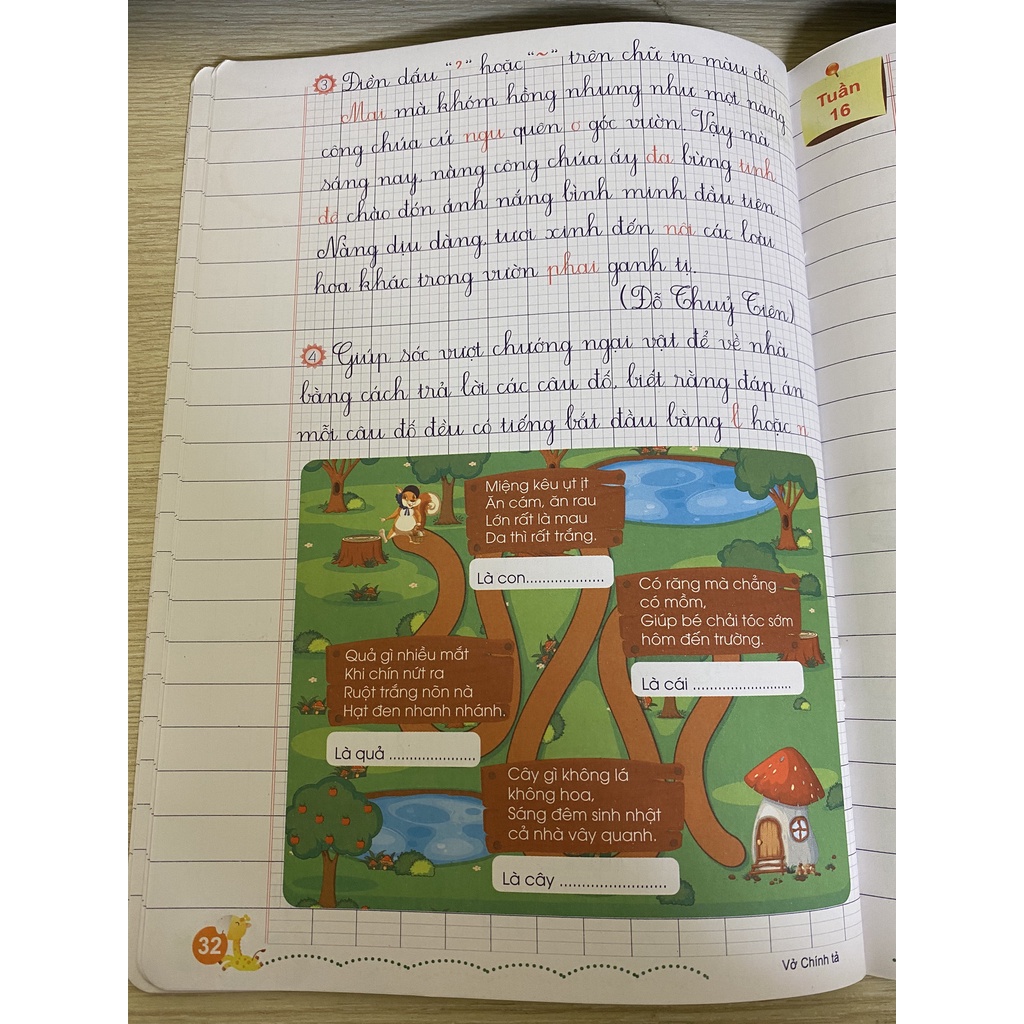 3 Điền dấu "?" hoặc "~" trên chữ in màu đỏ.
Mai mà khóm hồng nhung như một nàng
công chúa cứ ngu quên o góc vườn. Vậy mà
sáng nay, nàng công chúa ấy đa bừng tinh
đê chào đón ánh nắng bình minh đầu tiên.
Nàng dịu dàng, tươi xinh đến nôi các loài
hoa khác trong vườn phai ganh tị.
(Đỗ Thuỷ Tiên)
4 Giúp sóc vượt chướng ngại vật để về nhà
bằng cách trả lời các câu đố, biết rằng đáp án
mỗi câu đố đều có tiếng bắt đầu bằng l hoặc n
Miệng kêu ụt ịt
Ăn cám, ăn rau
Lớn rất là mau
Da thì rất trắng.
Là con...................
Có răng mà chẳng
có mồm,
Giúp bé chải tóc sớm
hôm đến trường.
Là cái .........................
Quả gì nhiều mắt
Khi chín nứt ra
Ruột trắng nõn nà
Hạt đen nhanh nhánh.
Là quả .....................
Cây gì không lá
không hoa,
Sáng đêm sinh nhật
cả nhà vây quanh.
Là cây .........................
32
Vở Chính tả
Tuần
16